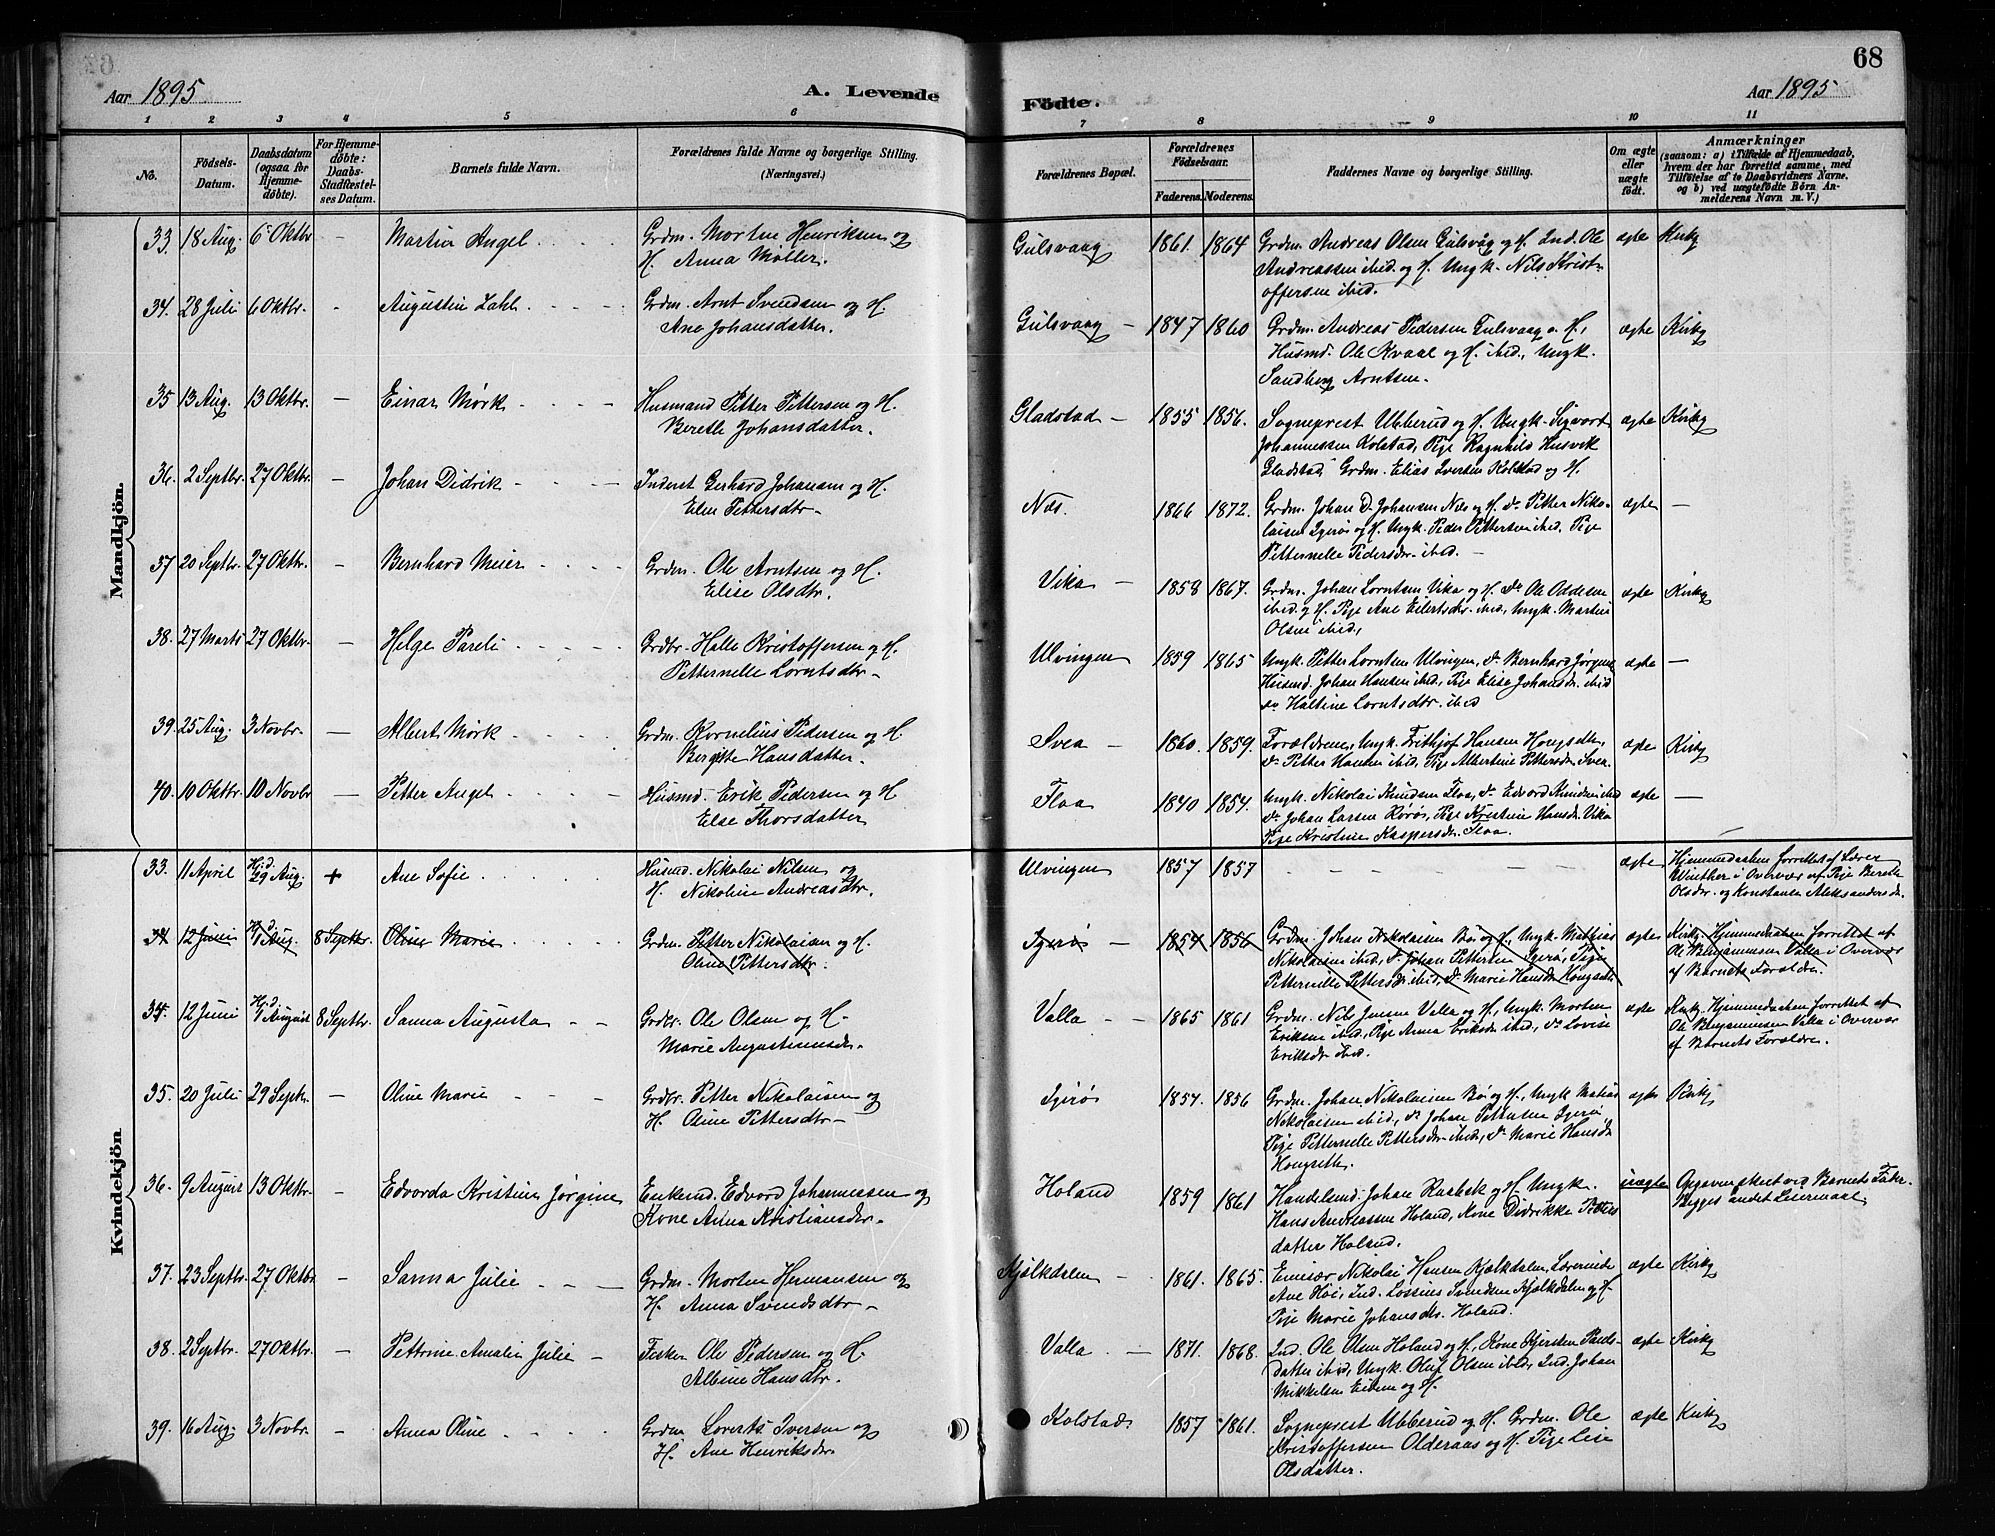 68
Aar 1895
A. Levende
Födte.
Aar 1895
1 2 3 4 5 6 7 8 9 10 11
No.
Födsels-
Datum.
Daabsdatum
(ogsaa for
Hjemme-
döbte).
For Hjemme-
döbte:
Daabs-
Stadfæstel-
ses Datum.
Barnets fulde Navn.
Forældrenes fulde Navne og borgerlige Stilling.
(Næringsvei.)
Forældrenes Bopæl.
Forældrenes
Fødselsaar.
Faderens.
Moderens.
Faddernes Navne og borgerlige Stilling.
Om ægte
eller
uægte
födt.
Anmærkninger
(saasom: a) i Tilfælde af Hjemmedaab,
hvem der har forrettet samme, med
Tilföielse af to Daabsvidners Navne,
og b) ved uægtefödte Börn An-
melderens Navn m. V.)
Mandkjön.
33. 18 Aug. 6 Oktbr – Martin Angel Grdm. Morten Henriksen og
H. Anna Møller.
Gulsvaag 1861. 1864 Grdm. Andreas Olsen Gulsvåg og H. Ind. Ole
Andreassen ibid. og H. Ungk. Nils Krist-
offersen ibid.
ægte Kirkg
34. 28 Juli 6 Oktbr. - Augustin Lahl Grdm. Arnt Svendsen og H.
Ane Johansdatter.
Gulsvaag – 1847 1860 Grdm. Andreas Pedersen Gulsvaag o. H.,
Husmd. Ole Kvaal og H. ibid., Ungk.
Sandberg Arntsen.
ægte Kirkg
35 13 Aug. 13 Oktbr. – Einar Mørk Husmand Petter Pettersen og H.
Berette Johansdatter.
Gladstad – 1855 1856. Sogneprest Ubberud og H. Ungk. Sigvart
Johannessen Kolstad, Pige Ragnhild Husvik
Gladstad, Grdm. Elias Iversen Kolstad og H.
ægte Kirkg
36. 2 Septbr. 27 Oktbr. – Johan Didrik Inderst Gerhard Johansen og H.
Elen Pettersdtr.
Næs. 1866 1872. Grdm. Johan D. Johansen Næs og H. do Petter Niko-
laisen Igerøs og H. Ungk. Peder Pettersen ibid. Pige
Petternelle Pedersdr. ibid. –
ægte –
37 20 Septbr. 27 Oktbr. – Bernhard Meier Grdm. Ole Arntsen og H.
Elise Olsdtr.
Vika – 1858 1867. Grdm. Johan Lorntsen Vika og H. do Ole Oddesen
ibid. og H. Pige Ane Eilertsdr. ibid., Ungk. Martin
Olsen ibid.,
ægte Kirkg
38. 27 Marts 27 Oktbr. – Helge Pareli Grdbr. Halle Kristoffersen og H.
Petternelle Lorntsdtr.
Ulvingen 1859 1865 Ungk. Petter Lorntsen Ulvingen, do Bernhard Jørgens
Husmd. Johan Hansen ibid., Pige Elise Johansdr. ibid
do Haltine Lorntsdtr. ibid
ægte –
39. 25 Aug. 3 Novbr. – Albert Mørk Grdm. Kornelius Pedersen og H.
Bergitte Hansdatter.
Svea – 1860. 1859. Forældrene, Ungk. Frithjof Hansen Hongseth,
do Petter Hansen ibid, Pige Albertine Pettersdr. Svea.
ægte Kirkg
40. 10 Oktbr. 10 Novbr – Petter Angel Husmd. Erik Pedersen og H
Else Thorsdatter
Flaa 1840 1854. Ungk. Nikolai Knudsen Flaa, do Edvard Knudsen ibid
do Johan Larsen Rørøs, Pige Kristine Hansdr. Vika
Pige Kristine Kaspersdr. Flaa.
ægte –
Kvindekjön
33. 11 April Hj.d. 29 Aug. + Ane Sofie Husmd. Nikolai Nilsen og
H. Nikoline Andreasdtr.
Ulvingen 1857 1857 – – – – –
ægte Hjemmedaaben forrettet af Lærer
Winther i Overvær af Pige Berette
Olsdr. og Konstanse Aleksandersdr.
34 12 Juni Hj.d. 1 Aug. 8 Septbr. Oline Marie Grdm. Petter Nikolaisen og H.
Oline Pettersdtr.
Igerøs – 1854 1856 Grdm. Johan Nikolaisen Bø og H., Ungk. Mathias
Nikolaisen ibid, do Johan Pettersen Igerø, Pige
Petternelle Pettersdr. ibid, do Marie Hansdr. Hongseth
ægte Kirkg. Hjemmedaaben forrettet af
Ole Benjaminsen Valla i Overvær
af Barnets Forældre.
34. 12 Juni Hj.d. 1 August 8 Septbr. Sanna Augusta Grdbr. Ole Olsen og H.
Marie Augustinusdr.
Valla 1865 1861 Grdm. Nils Jensen Valla og H., Ungk. Morten
Eriksen ibid., Pige Anna Eriksdr. ibid., do Lovise
Eriksdr. ibid.
ægte Kirkg. Hjemmedaaben forrettet af
Ole Benjaminsen Valla i Overvær
af Barnets Forældre.
35. 20 Juli 29 Septbr. – Oline Marie Grdbr. Petter Nikolaisen og
H. Oline Pettersdtr.
Igerøs 1854. 1856 Grdm. Johan Nikolaisen Bø og H., Ungk. Matias
Nikolaisen ibid, do Johan Pettersen Igerø,
Pige Petternelle Pettersdr. ibid, do Marie Hansdr
Hongseth.
ægte Kirkg
36. 9 August 13 Oktbr. – Edvarda Kristine Jørgine Enkemd. Edvard Johannessen og
Kone Anna Kristiansdr.
Holand 1859 1861 Handelsmd. Johan Raabek og H. Ungk.
Hans Andreassen Holand, Kone Didrikke Peters
datter Holand.
uægte Opgaven skeet ved Barnets Fader.
Begges andet Leiermaal
37. 23 Septbr. 27 Oktbr – Sanna Julie Grdm. Morten Hermansen og
H. Anna Svendsdtr.
Kjølkdalen – 1861. 1865. Emisær Nikolai Hansen Kjølkdalen, Lærerinde
Ane Høi, Ind. Lossius Svendsen Kjølkdalen og H.
Pige Marie Johansdtr. Holand.
ægte Kirkg
38. 2 Septbr. 27 Oktbr. – Pettrine Amalie Julie Fisker Ole Pedersen og H.
Albine Hansdtr.
Valla – 1871. 1868. Ind. Ole Olsen Holand og H., Kone Kjersten Peders-
datter ibid, Ungk. Oluf Olsen ibid, Ind. Johan
Mikkelsen Eidem og H.
ægte Kirkg
39. 16 Aug. 3 Novbr. – Anna Oline Grdm. Lorents Iversen og
H. Ane Henriksdr.
Kolstad 1857 1861. Sogneprest Ubberud og H. Grdm. Ole
Kristoffersen Olderaas og H. Pige Lise
Olsdatter.
ægte Kirkg